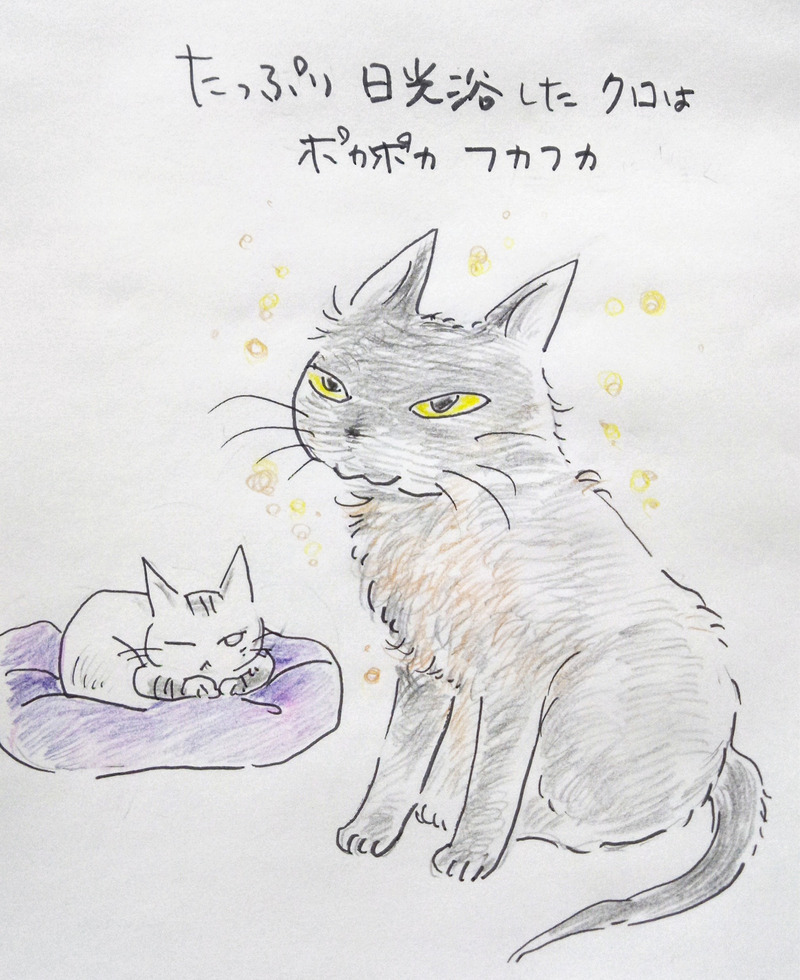 たっぷり 日光浴した クロは
ポカポカ フカフカ